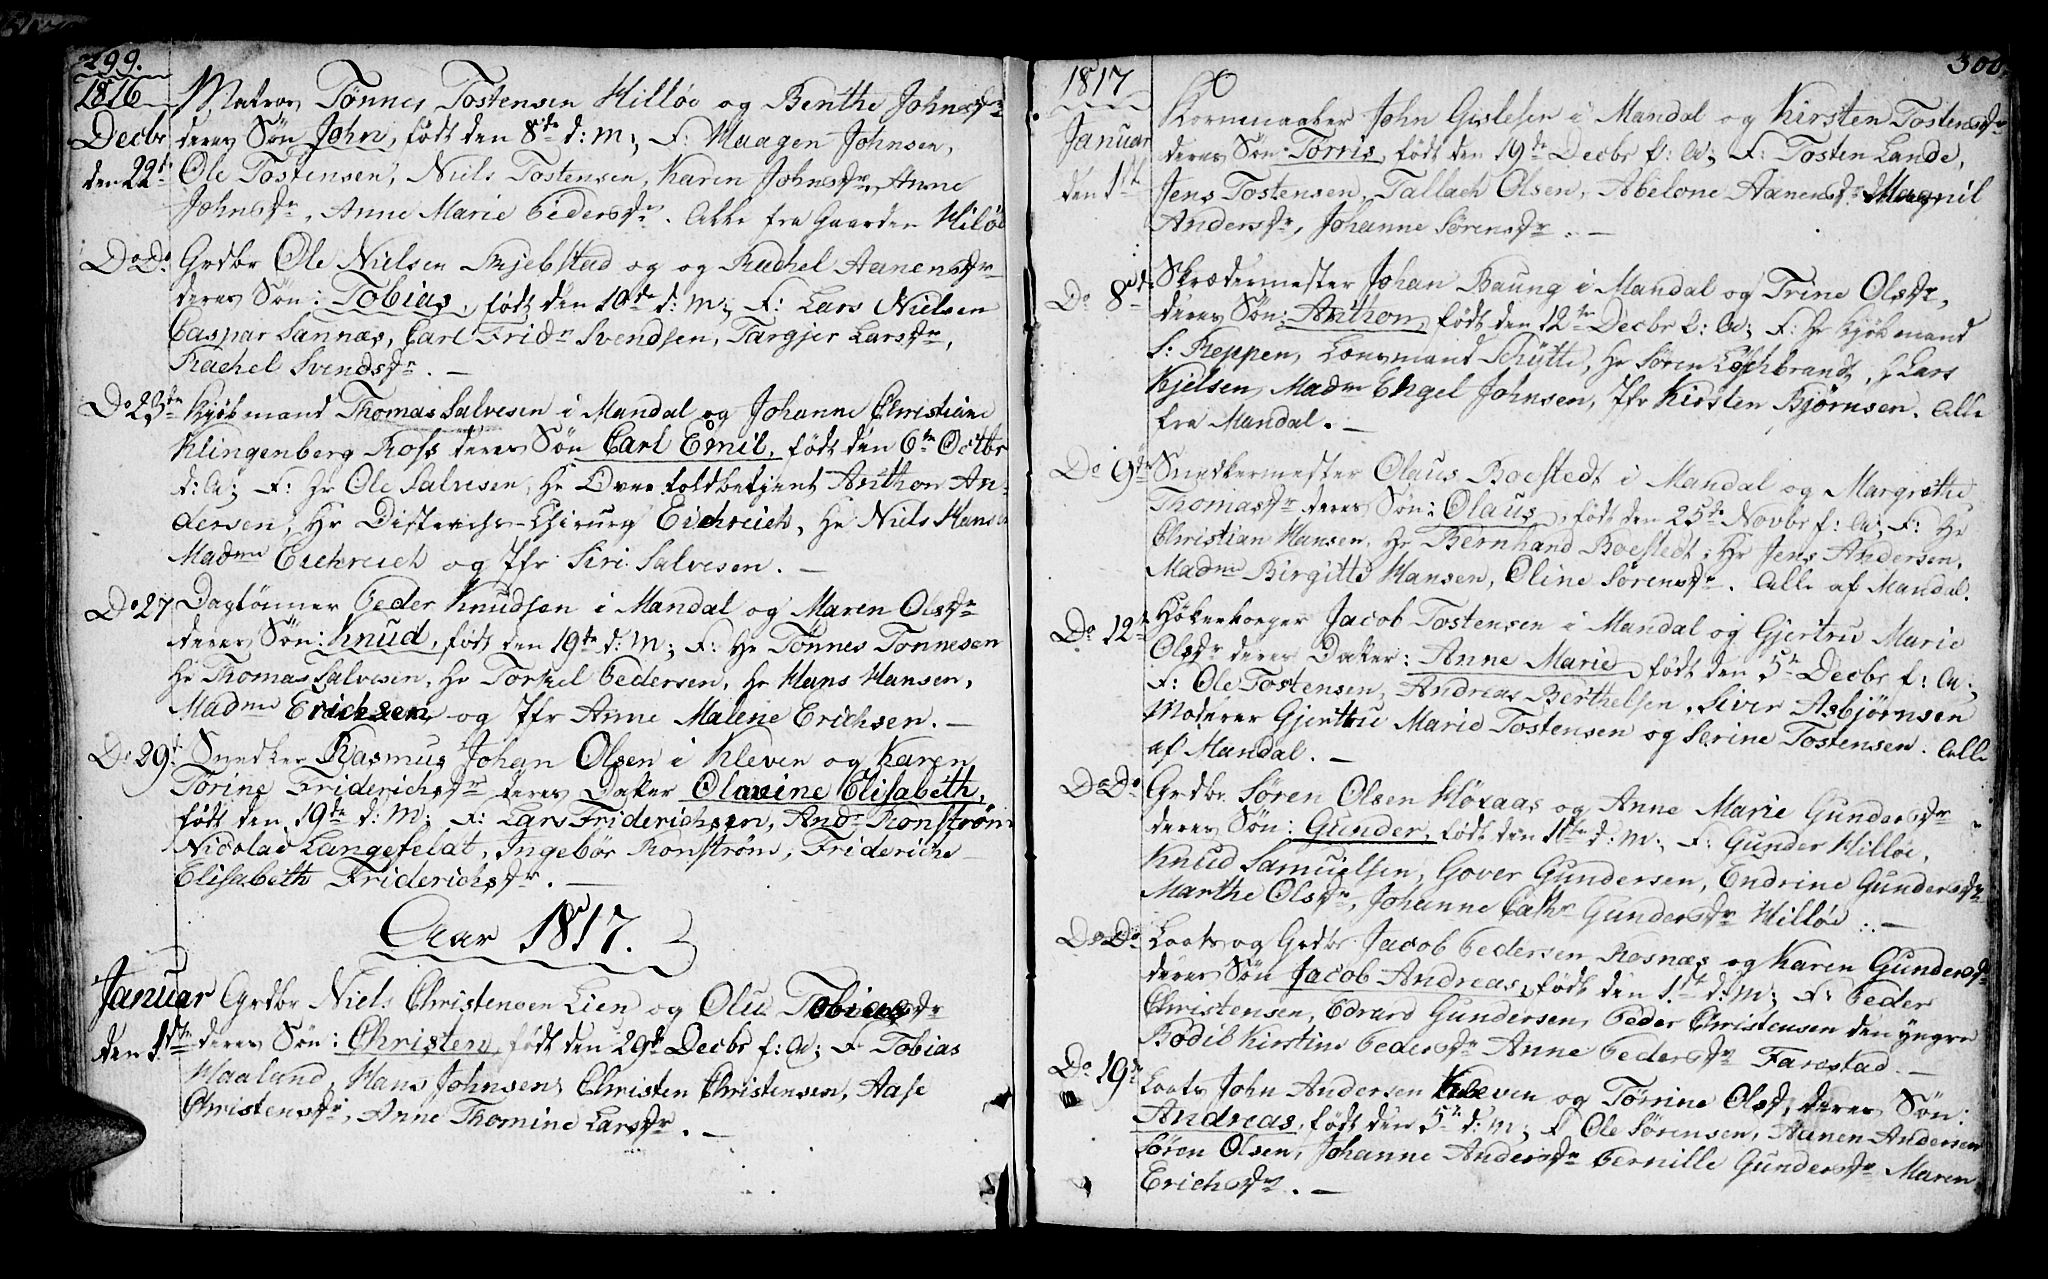 299.
1816
Decbr
den 22de
Matros Tønnes Tostensen Hilløe og Benthe Johnsdr
deres Søn John, født den 8de d: M; F: Haagen Johnsen,
Ole Tostensen, Niels Tostensen, Karen Johnsdr, Anne
Johnsdr, Anne Marie Pedersdr. Alle fra Gaarden Hiløe
Do Do Grdbr Ole Nielsen Skjebstad og og Rachel Aanensdr
deres Søn: Tobias, født den 10de d: M; F: Lars Nielsen
Caspar Sannæs, Carl Fridr Svendsen, Targjer Larsdr,
Rachel Svendsdr. —
Do 23de Kjøbmand Thomas Salvesen i Mandal og Johanne Christiane
Klingenberg Ross deres Søn Carl Emil, født den 6te Octbr
d: A; F: Hr Ole Salvesen, Hr Overtoldbetjent Anthon An-
dersen, Hr Districhts-Chirurg Eichreich, Hr Niels Hansen
Madme Eichreich og Jfr Siri Salvesen. —
Do 27 Dagtønner Peder Knudsen i Mandal og Maren Olsdr
deres Søn: Knud, født den 19de d: M; F: Hr Tønnes Tønnesen
Hr Thomas Salvesen, Hr Torkel Pedersen, Hr Hans Hansen,
Madme Erichsen og Jfr Anne Malene Erichsen. —
Do 29de Snedker Rasmus Johan Olsen i Kleven og Karen
Torine Friderichsdr deres Daater Olavine Elisabeth,
født den 19de d: M; F: Lars Friderichsen, Andr Ronstrøm
Nicolai Langefeldt, Ingebør Ronstrøm, Fridericke
Elisabeth Friderichsdr. —
Aar 1817.
Januar Grdbr Niels Christensen Lien og Olu Tobiasdr
den 1ste deres Søn: Christen, født den 29de Decbr f: A; F: Tobias
Haaland, Hans Johnsen, Christen Christensen, Aase
Christensdr, Anne Thomine Larsdr. —
300.
1817
Januar
den 1ste
Kornmaaler John Gislesen i Mandal og Kirsten Tostensdr
deres Søn: Torris, født den 19de Decbr f: A; F: Tosten Lande,
Jens Tostensen, Tallach Olsen, Abelone Aanensdr, Magnil
Andersdr, Johanne Sørensdr. —
Do 8de Skrædermester Johan Baung i Mandal og Trine Olsdr,
deres Søn: Anthon, født den 12te Decbr f: A; F: Hr Kjøbmand
S: Reppen, Lensmand Schütte, Hr Søren Lochbrandt, H Lars
Kjelsen, Madme Engel Johnsen, Jfr Kirsten Bjørnsen. Alle
fra Mandal. —
Do 9de Snedkermester Olaus Boestedt i Mandal og Margrethe
Thomasdr deres Søn: Olaus, født den 25de Novbr f: A; F: Hr
Christian Hansen, Hr Bernhand Boestedt, Hr Jens Andersen,
Madme Birgitte Hansen, Oline Sørensdr. Alle af Mandal.
Do 12te Høkerborger Jacob Tostensen i Mandal og Gjertru Marie
Olsdr deres Daater: Anne Marie, født den 5te Decbr f: A;
F: Ole Tostensen, Andreas Berthelsen, Siver Asbjørnsen
Moderen Gjertru Marie Tostensen og Serine Tostensen. Alle
af Mandal. —
Do Do Grdbr Søren Olsen Høxaas og Anne Marie Gundersdr
deres Søn: Gunder, født den 1ste d: M; F: Gunder Hilløe,
Knud Samuelsen, Gover Gundersen, Endrine Gundersdr
Marthe Olsdr, Johanne Cathr Gundersdr Hilløe. —
Do Do Loets og Grdbr Jacob Pedersen Rosnæs og Karen Gundersdr
deres Søn Jacob Andreas, født den 1ste d: M; F: Peder
Christensen, Edvard Gundersen, Peder Christensen den yngre
Bodil Kirstine Pedersdr Anne Pedersdr Farestad. —
Do 19de Loets John Andersen Kleven og Torrine Olsd, deres Søn:
Andreas, født den 5te d: M; F Ole Sørensen, Aanen Andersen
Søren Olsen, Johanne Andersdr Pernille Gundersdr Maren
Erichsdr. —